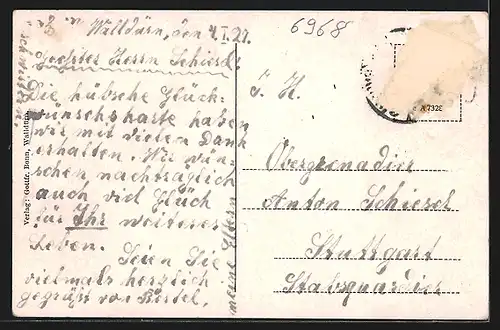 Walldürn, den 4.I.21.
Geehrter Herrn Schiesel!
Die hübsche Glück-
wunschskarte haben
wir mit vielen Dank
erhalten. Wir wün-
schen nachträglich
auch viel Glück
für Ihr weiteres
Leben.
Seien Sie
vielmals herzlich
gegrüßt von
meine Eltern
6968
S. H.
Obergrenadier
Anton Schiesel
Stuttgart
Verlag: Gottfr. Bonn, Walldürn
A 7328